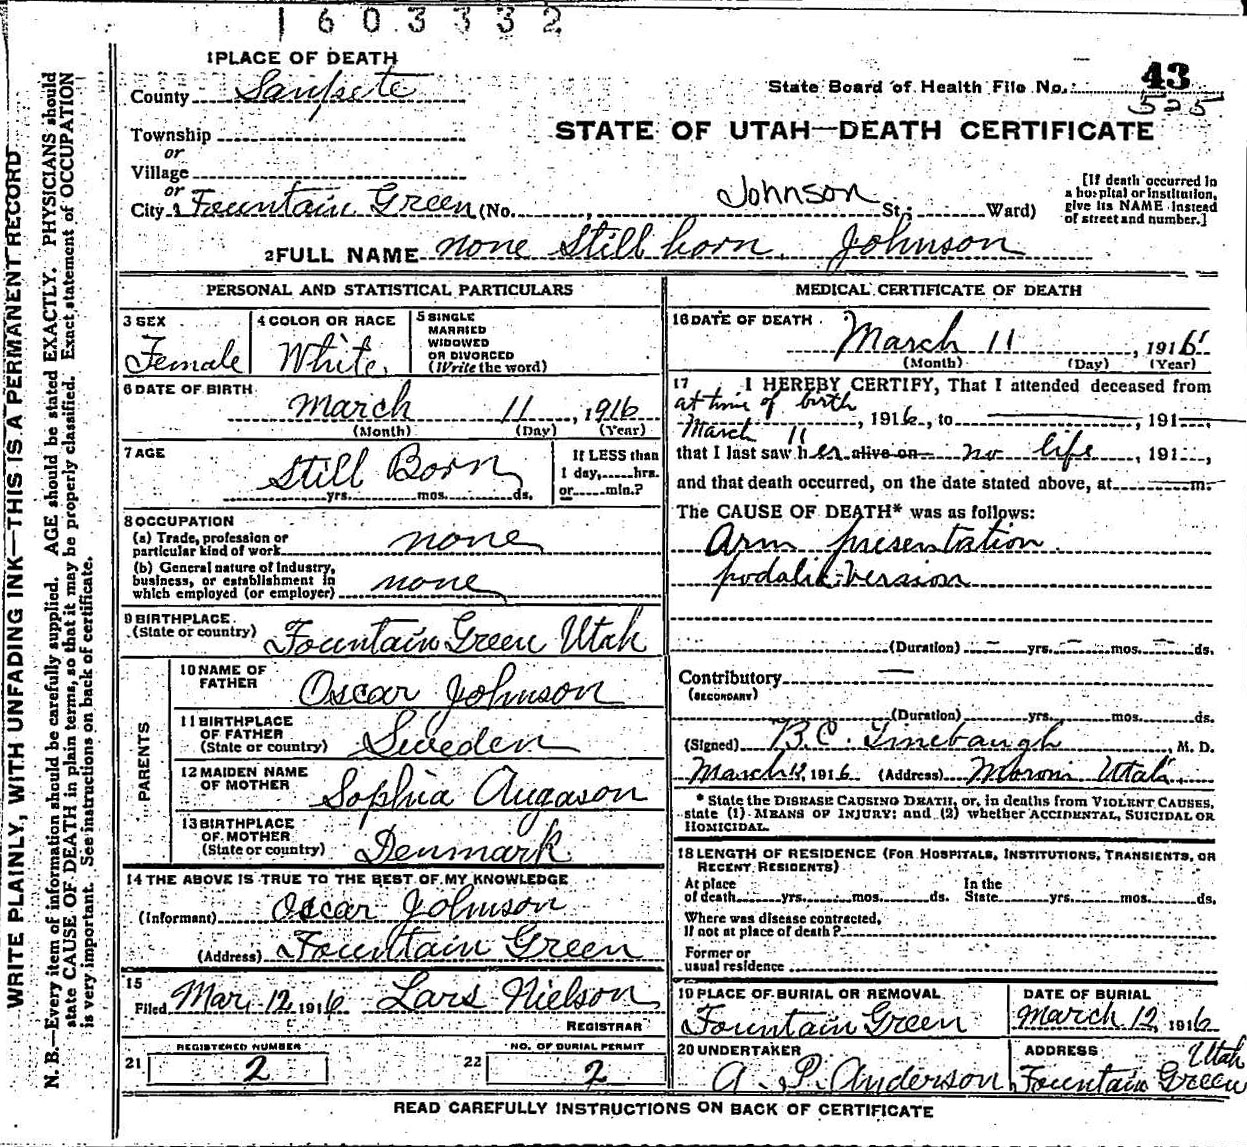 1603332
1 PLACE OF DEATH
County Sanpete
State Board of Health File No. 43
525
Township
or
STATE OF UTAH—DEATH CERTIFICATE
Village
or
[If death occurred in
a hospital or institution,
give its NAME instead
of street and number.]
City Fountain Green (No. , Johnson St; Ward)
2 FULL NAME none Still born. Johnson
PERSONAL AND STATISTICAL PARTICULARS
3 SEX
Female
4 COLOR OR RACE
White.
5 SINGLE
MARRIED
WIDOWED
OR DIVORCED
(Write the word)
6 DATE OF BIRTH
March 11, 1916
(Month) (Day) (Year)
7 AGE
Still Born
yrs. mos. ds.
If LESS than
1 day, hrs.
or min.?
8 OCCUPATION
(a) Trade, profession or
particular kind of work none
(b) General nature of industry,
business, or establishment in
which employed (or employer) none
9 BIRTHPLACE
(State or country) Fountain Green Utah
PARENTS
10 NAME OF
FATHER Oscar Johnson
11 BIRTHPLACE
OF FATHER
(State or country) Sweden
12 MAIDEN NAME
OF MOTHER Sophia Augason
13 BIRTHPLACE
OF MOTHER
(State or country) Denmark
14 THE ABOVE IS TRUE TO THE BEST OF MY KNOWLEDGE
(Informant) Oscar Johnson
(Address) Fountain Green
15
Filed Mar 12, 1916 Lars Nielson
REGISTRAR
REGISTERED NUMBER
21 2
NO. OF BURIAL PERMIT
22 2
MEDICAL CERTIFICATE OF DEATH
16 DATE OF DEATH
March 11, 1916
(Month) (Day) (Year)
17 I HEREBY CERTIFY, That I attended deceased from
at time of birth , 1916, to , 191
March 11
that I last saw her alive on no life, 191 ,
and that death occurred, on the date stated above, at m.
The CAUSE OF DEATH* was as follows:
Arm presentation
podalic version
(Duration) yrs. mos. ds.
Contributory
(SECONDARY)
(Duration) yrs. mos. ds.
(Signed) B.C. Linebaugh, M. D.
March 12, 1916 (Address) Moroni Utah
* State the DISEASE CAUSING DEATH, or, in deaths from VIOLENT CAUSES,
state (1) MEANS OF INJURY; and (2) whether ACCIDENTAL, SUICIDAL OR
HOMICIDAL.
18 LENGTH OF RESIDENCE (FOR HOSPITALS, INSTITUTIONS, TRANSIENTS, OR
RECENT RESIDENTS)
At place
of death yrs. mos. ds.
In the
State yrs. mos. ds.
Where was disease contracted,
if not at place of death?
Former or
usual residence
19 PLACE OF BURIAL OR REMOVAL
Fountain Green
DATE OF BURIAL
March 12, 1916
20 UNDERTAKER
A. P. Anderson
ADDRESS
Utah
Fountain Green
READ CAREFULLY INSTRUCTIONS ON BACK OF CERTIFICATE
WRITE PLAINLY, WITH UNFADING INK—THIS IS A PERMANENT RECORD
N. B.—Every item of information should be carefully supplied. AGE should be stated EXACTLY. PHYSICIANS should
state CAUSE OF DEATH in plain terms, so that it may be properly classified. Exact statement of OCCUPATION
is very important. See instructions on back of certificate.